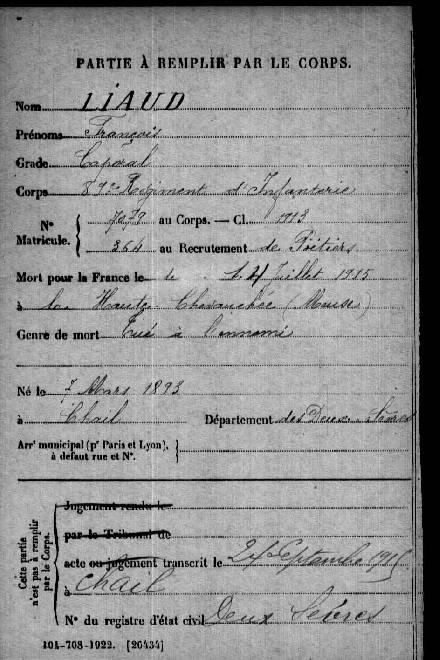 PARTIE À REMPLIR PAR LE CORPS.
Nom LIAUD
Prénoms François
Grade Caporal
Corps 89e Régiment d'Infanterie
N° Matricule. { au Corps. — Cl. 1913
364 au Recrutement de Poitiers
Mort pour la France le le 14 Juillet 1915
à la Haute Chevauchée (Meuse)
Genre de mort Tué à l'ennemi
Né le 7 Mars 1893
à Chail Département des Deux Sèvres
Arrt municipal (pr Paris et Lyon), à défaut rue et N°. }
Cette partie n'est pas à remplir par le Corps. {
Jugement rendu le
par le Tribunal de
acte ou jugement transcrit le Septembre 1915
à Chail
N° du registre d'état civil Deux Sèvres
101-708-1922. [26434]